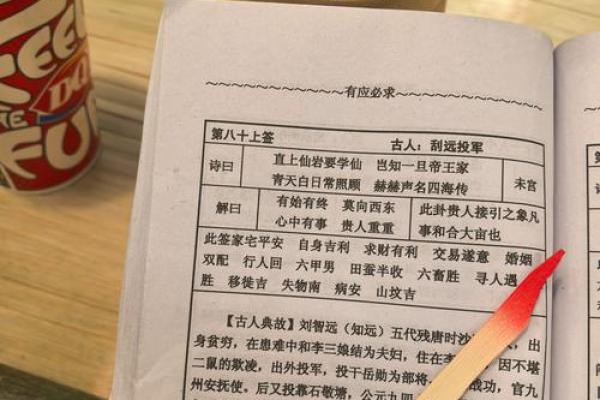 DQ
有应必求
第八十上签 古人：刮远投军
诗曰 直上仙岩要学仙 岂知一旦帝王家
青天白日常照顾 赫赫声名四海传 未宫
解曰 有始有终 莫向西东 此卦贵人接引之象凡
心中有事 贵人重重 事和合大亩也
此签家宅平安 自身吉利 求财有利 交易遂意 婚姻
双配 行人回 六甲男 田蚕半收 六畜胜 寻人遇
胜 移徙吉 失物南 病安 山坟吉
【古人典故】刘智远（知远）五代残唐时 出
身贫穷，在患难中和李三娘结为夫妇，住在 因不堪
二鼠的欺凌，出外投军，投干岳勋为部将 战功，官九
州安抚使。后又投靠石敬塘，公元九四